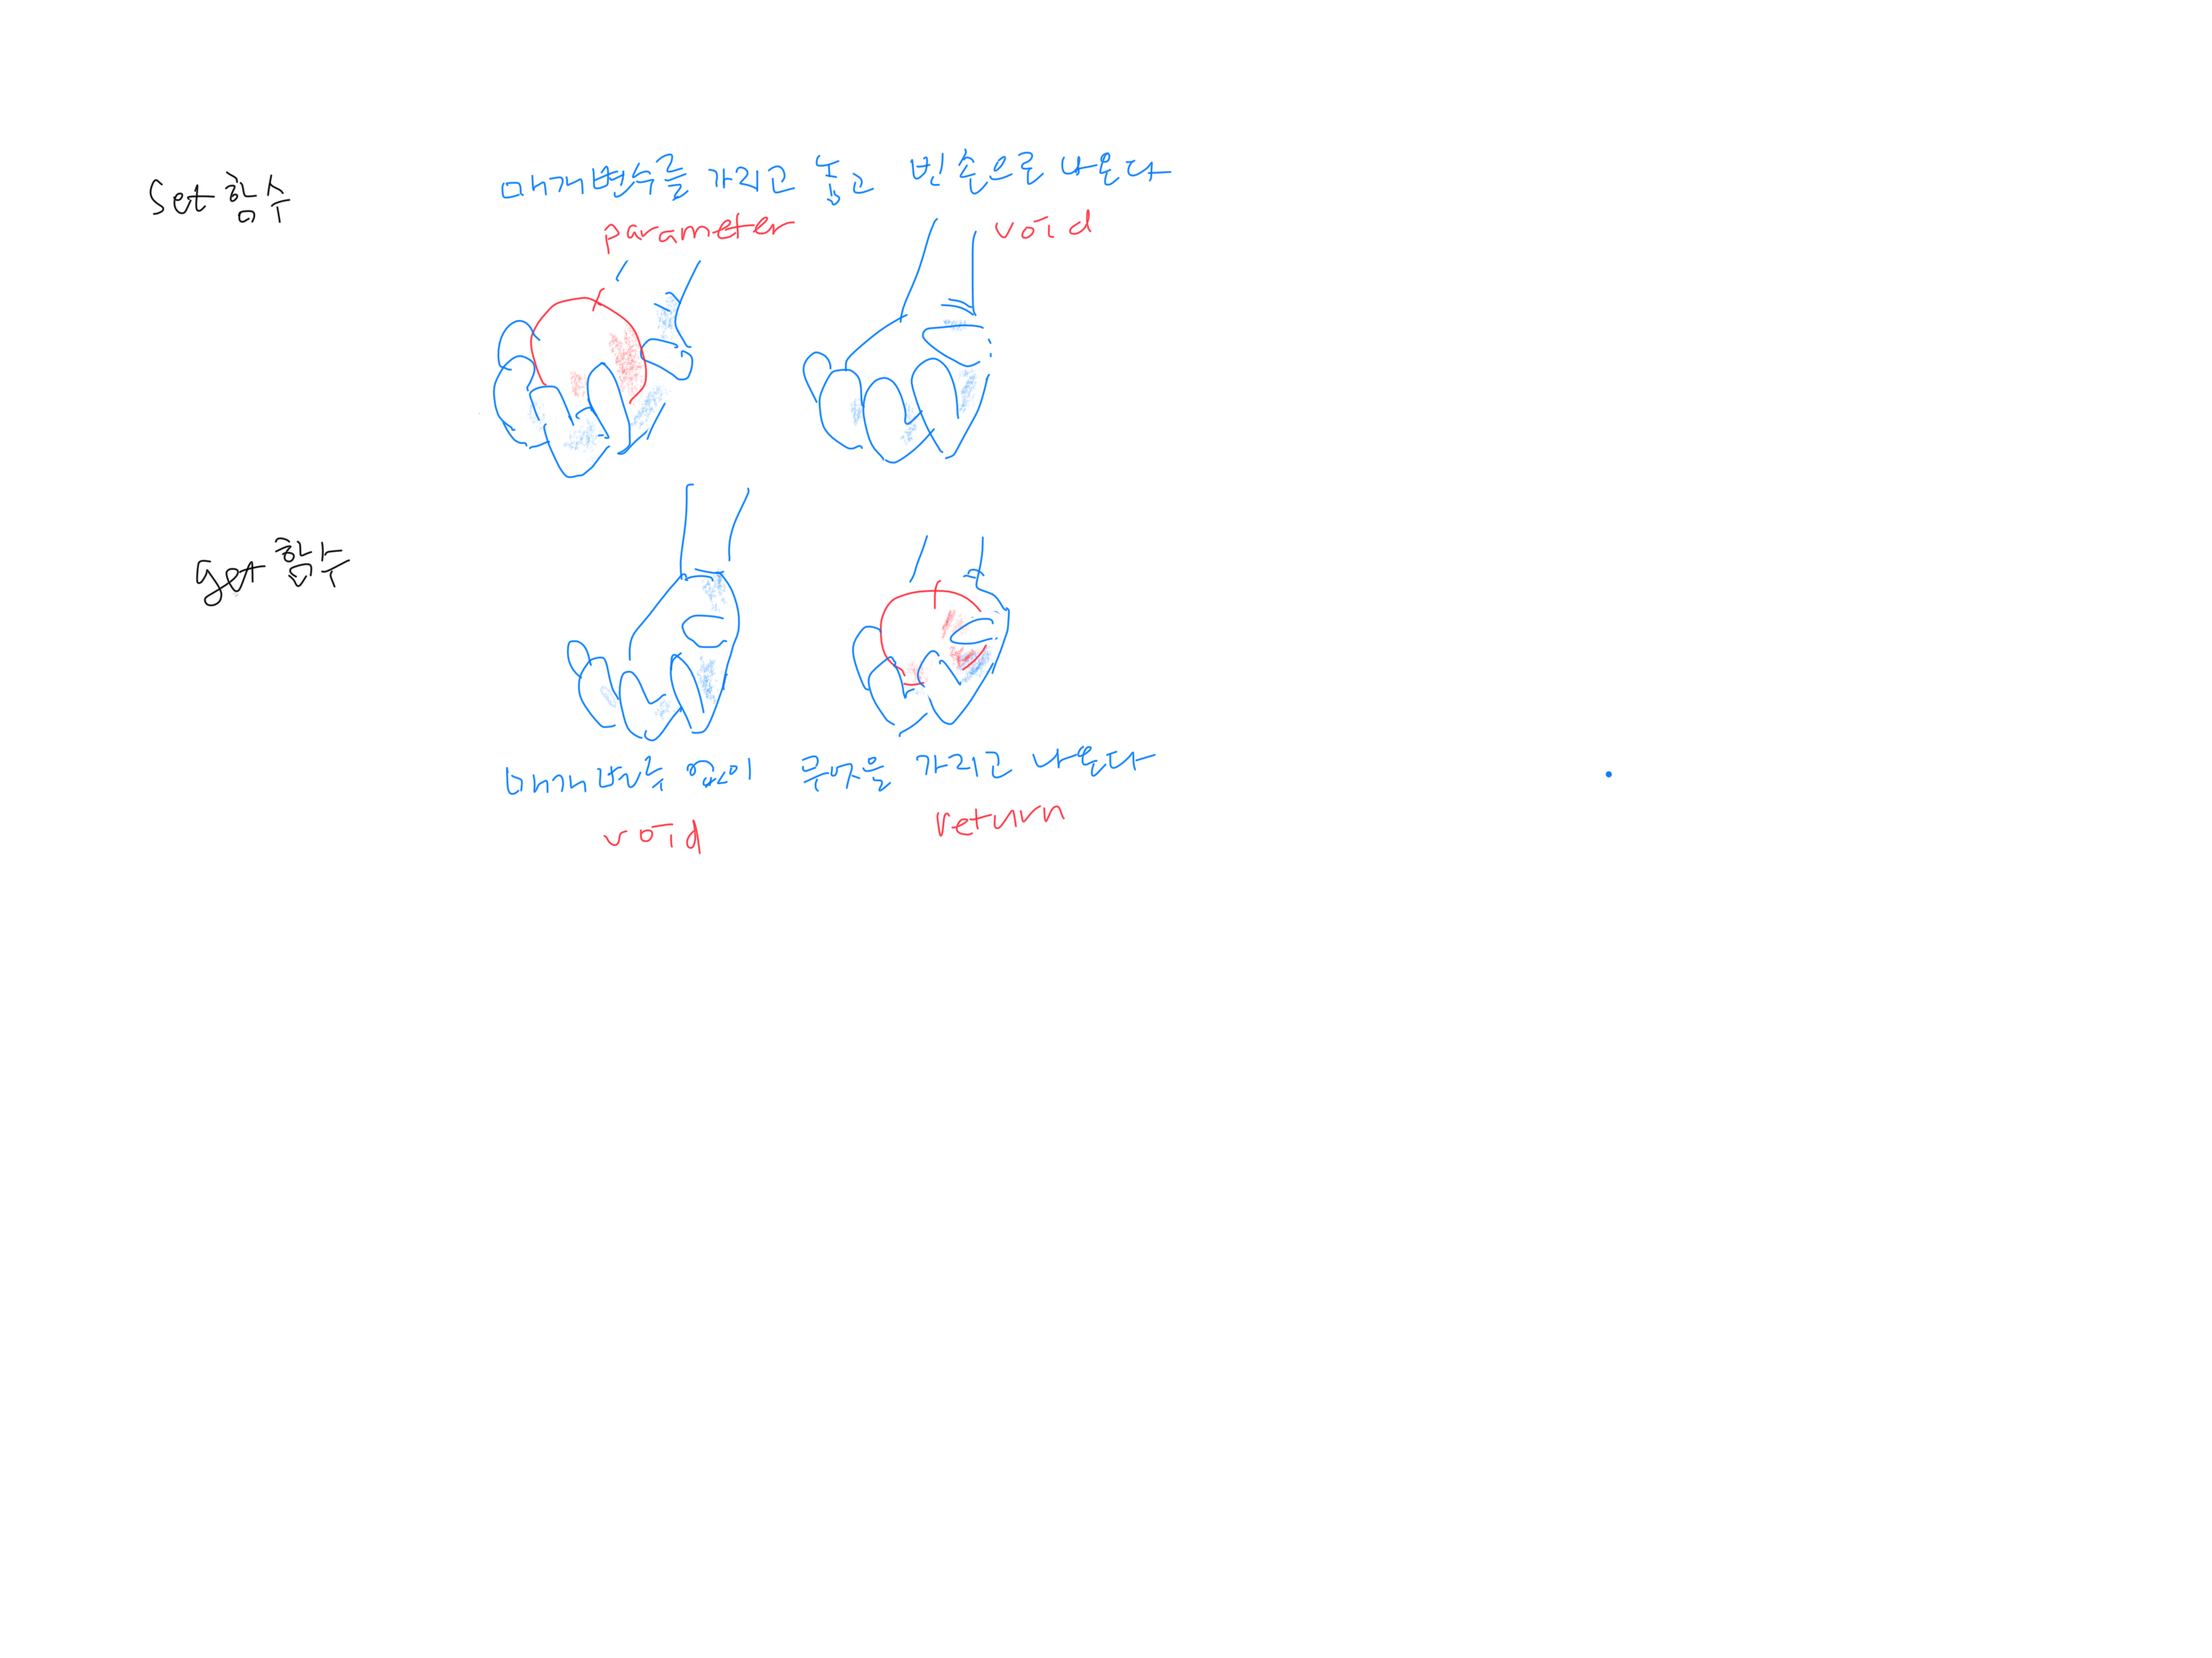 set 함수
매개변수를 가지고 놓고 빈손으로 나온다
parameter
void
get 함수
매개변수 없이 무엇을 가지고 나온다
void
return